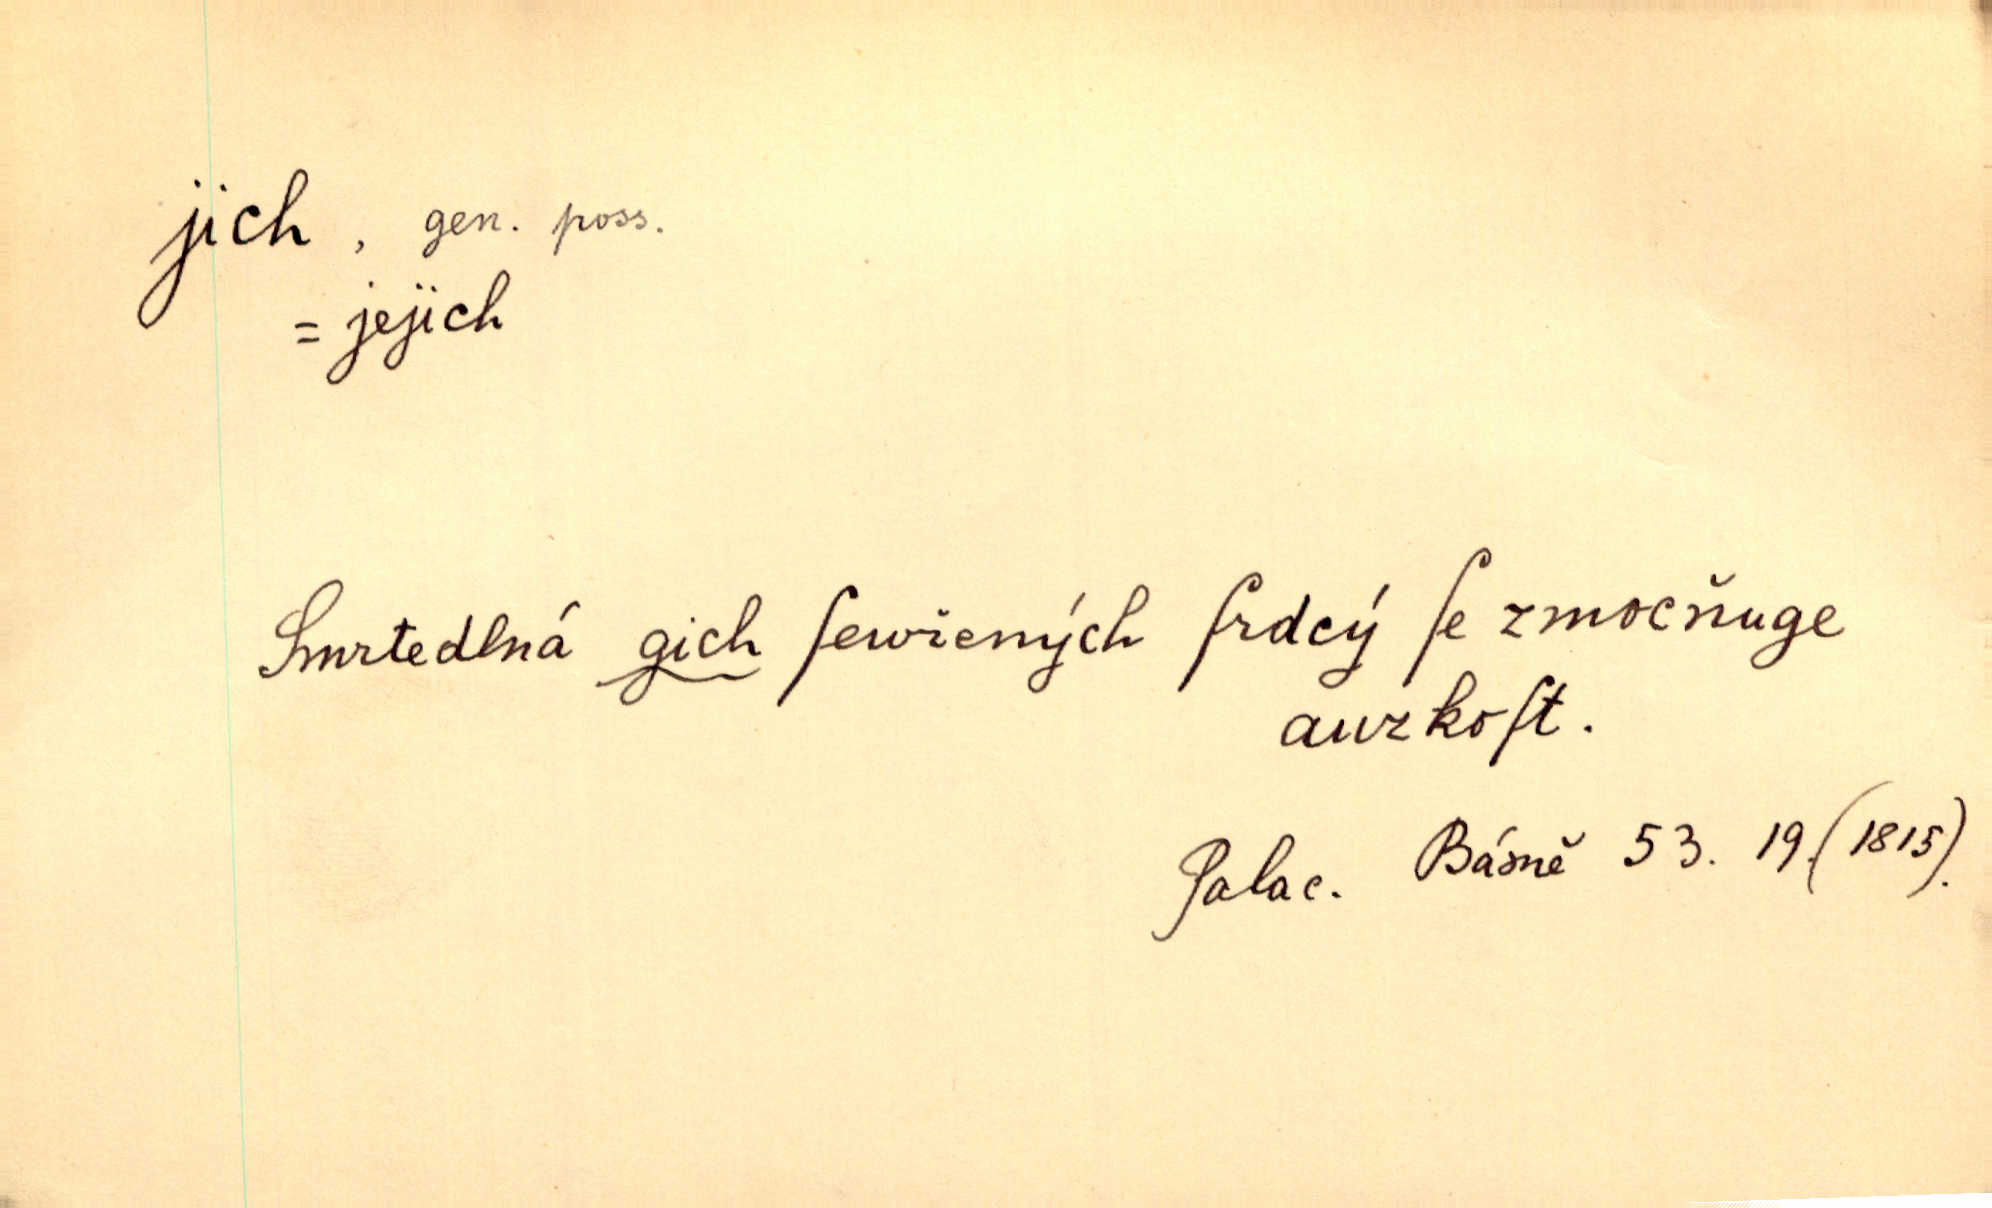 jich, gen. poss.
= jejich
Smrtedlná gich ſewřených ſrdcý ſe zmocňuge
auzkoſt.
Palac. Básně 53. 19. (1815).